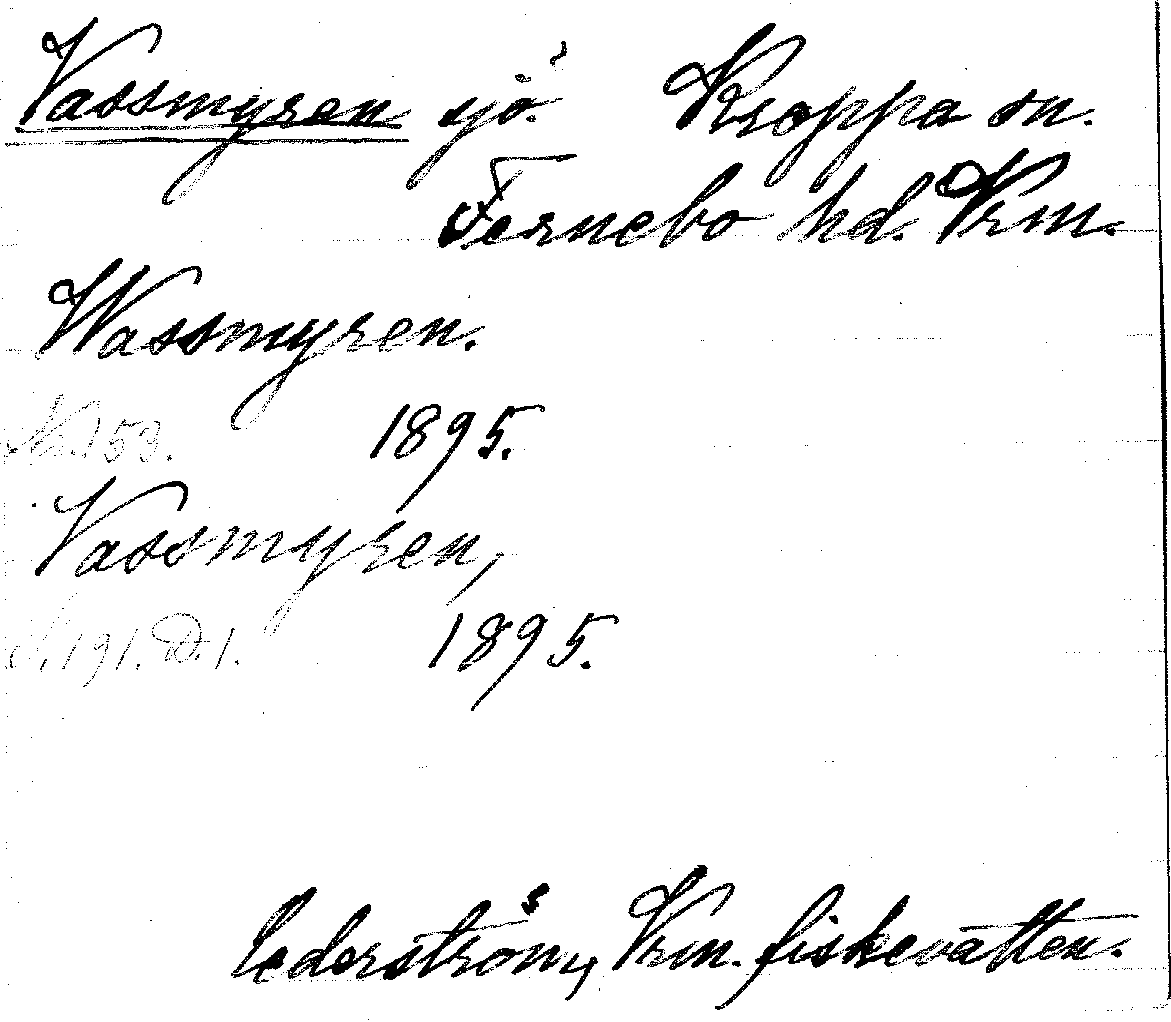 Vassmyren sjö. Kroppa sn.
Fernebo hd. Vrm.
Wassmyren.
N:153. 1895.
Vassmyren,
S. 191. D. 1. 1895.
Cederström, Vrm. fiskevatten.